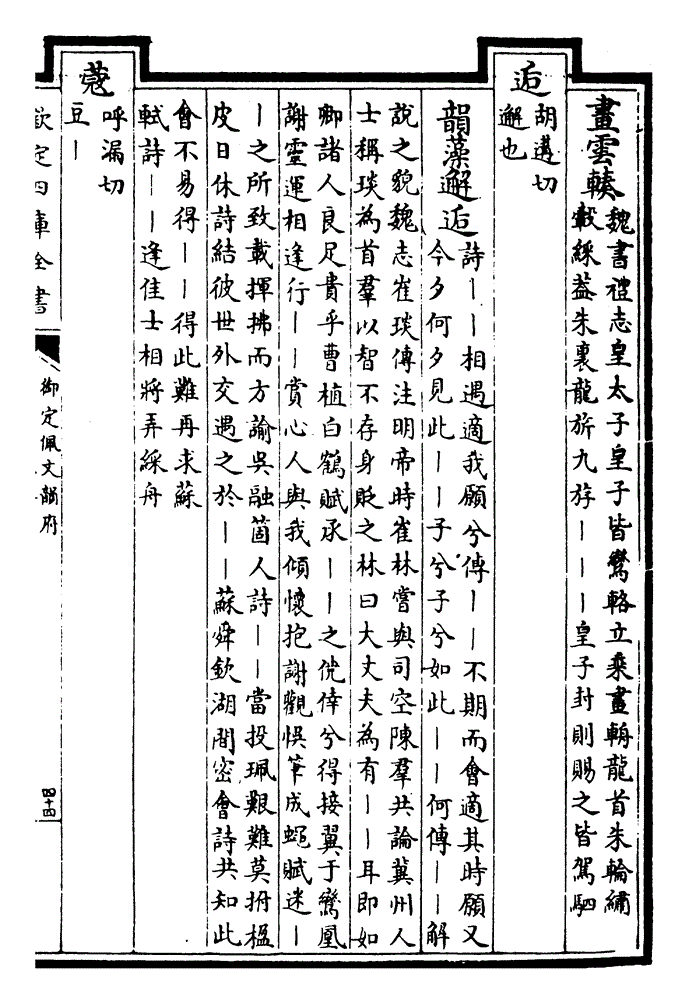 畫雲轃
魏書禮志皇太子皇子皆鸞輅立乗畫輈龍首朱輪繡
轂綵葢朱裏龍旂九斿丨丨丨皇子封則賜之皆駕駟
逅
胡遘切
邂也
韻藻邂逅
詩丨丨相遇適我願兮傳丨丨不期而會適其時願又
今夕何夕見此丨丨子兮子兮如此丨丨何傳丨丨解
說之貌魏志崔琰傳注明帝時崔林嘗與司空陳羣共論冀州人
士稱琰為首羣以智不存身貶之林曰大丈夫為有丨丨耳即如
卿諸人良足貴乎曹植白鶴賦承丨丨之侥倖兮得接翼于鸞凰
謝靈運相逢行丨丨賞心人與我傾懷抱謝觀悞筆成蠅賦迷丨
丨之所致載揮拂而方諭吳融箇人詩丨丨當投珮艱難莫拊楹
皮日休詩結彼世外交遇之於丨丨蘇舜欽湖閒密會詩共知此
會不易得丨丨得此難再求蘇
軾詩丨丨逢佳士相將弄綵舟
蔻
呼漏切
豆丨
欽定四庫全書
御定佩文韻府
四十四